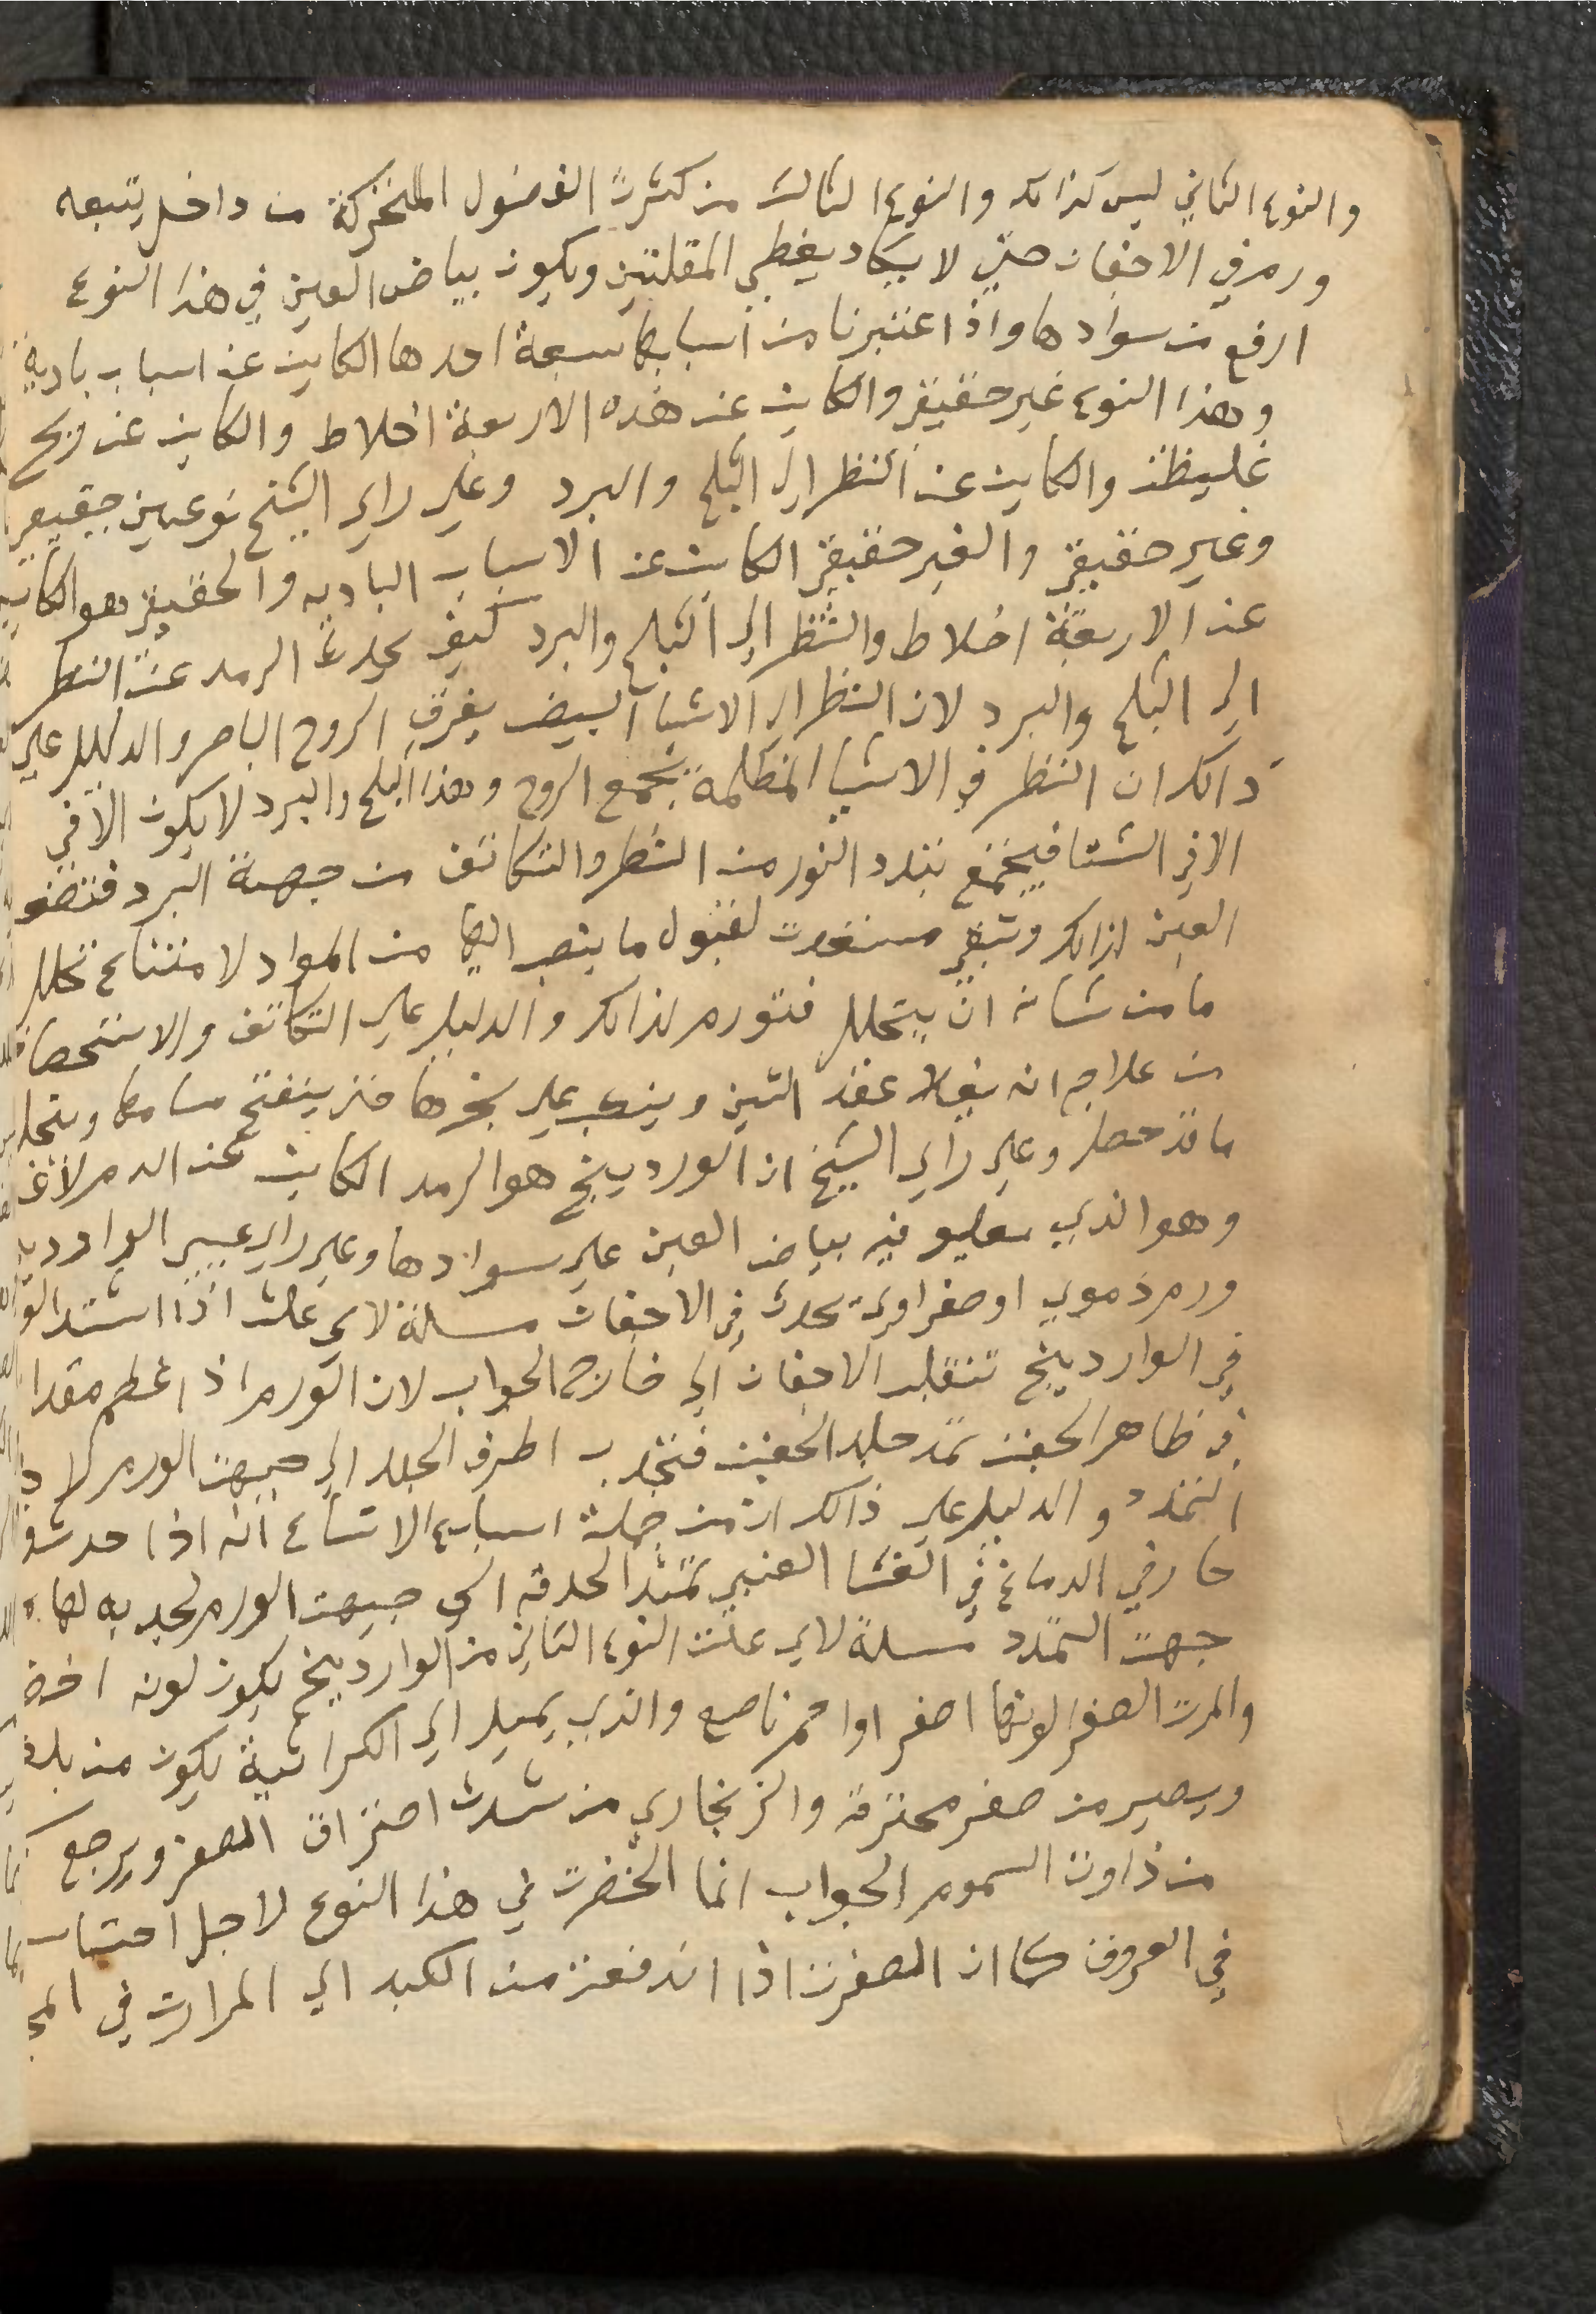 والنوع الثاني ليس كذالك والنوع الثالث من كثرت الفضول المتحركة من داخل يتبعه
ورم في الاجفان حتي لا يكاد يغطي المقلتين ويكون بياض العين في هذا النوع
ارفع من سوادها واذا اعتبرنا من اسبابها سبعة احدها الكاين عن اسباب بادية
وهذا النوع غير حقيقي والكاين عن هذه الاربعة اخلاط والكاين عن ريح
غليظة والكاين عن النظر الي الثلج والبرد وعلي راي الشيخ نوعين حقيقي
وغير حقيقي والغير حقيقي الكاين عن الاسباب الباديه والحقيقي هو الكاين
عن الاربعة اخلاط والنظر الي الثلج والبرد كيف يحدث الرمد عن النظر
الي الثلج والبرد لان النظر الي الاشيا البيض يفرق الروح الباصر والدليل علي
ذالك ان النظر في الاشيا المظلمة يجمع الروح وهذا الثلج والبرد لا يكون الا في
الا في الشتا فيجتمع تبدد النور من النظر والتكاثف من جهة البرد فتضعف
العين لذالك وتبقي مستعدت لقبول ما ينصب اليها من المواد لامتناع تحلل
ما من شانه ان يتحلل فتورم لذالك والدليل علي التكاثف والاستحصاف
من علاجه انه يغلا عقد التين وينكب علي بخرها حتي ينفتح مسامها ويتحلل
ما قد حصل وعلي راي الشيخ ان الوردينج هو الرمد الكاين عن الدم لا غير
وهو الذي يعلو فيه بياض العين علي سوادها وعلي راي غيير الواردينج
ورم دموي او صفراوي يحدث في الاجفان مسلة لاي علت اذا اشتد الورم
في الواردينج تنقلب الاجفان الي خارج الجواب لان الورم اذا عظم مقداره
في ظاهر الجفن تمدد جلد الجفن فتنجذب اطرف الجلد الي جيهت الورم لاجل
التمدد والدليل علي ذالك ان من جملة اسباب الاتساع انه اذا حدث ورم
حار في الدماغ في الغشا العنبي تمتد الحدقه الي جيهت الورم لجذبه لها من
جهت التمدد مسلة لاي علت النوع الثاني من الواردينج يكون لونه اخضر
والمرت الصفرا لونها اصفر او احمر ناصع والذي يميل الي الكراثية يكون من بلغم
ويصير من صفر محترقة والزنجاري من شدت احتراق الصفر ويرجع
من ذاوت السموم الجواب انما الخضرت في هذا النوع لاجل احتباس
في العروق كما ان الصفرت اذا اندفعت من الكبد الي المرارت في